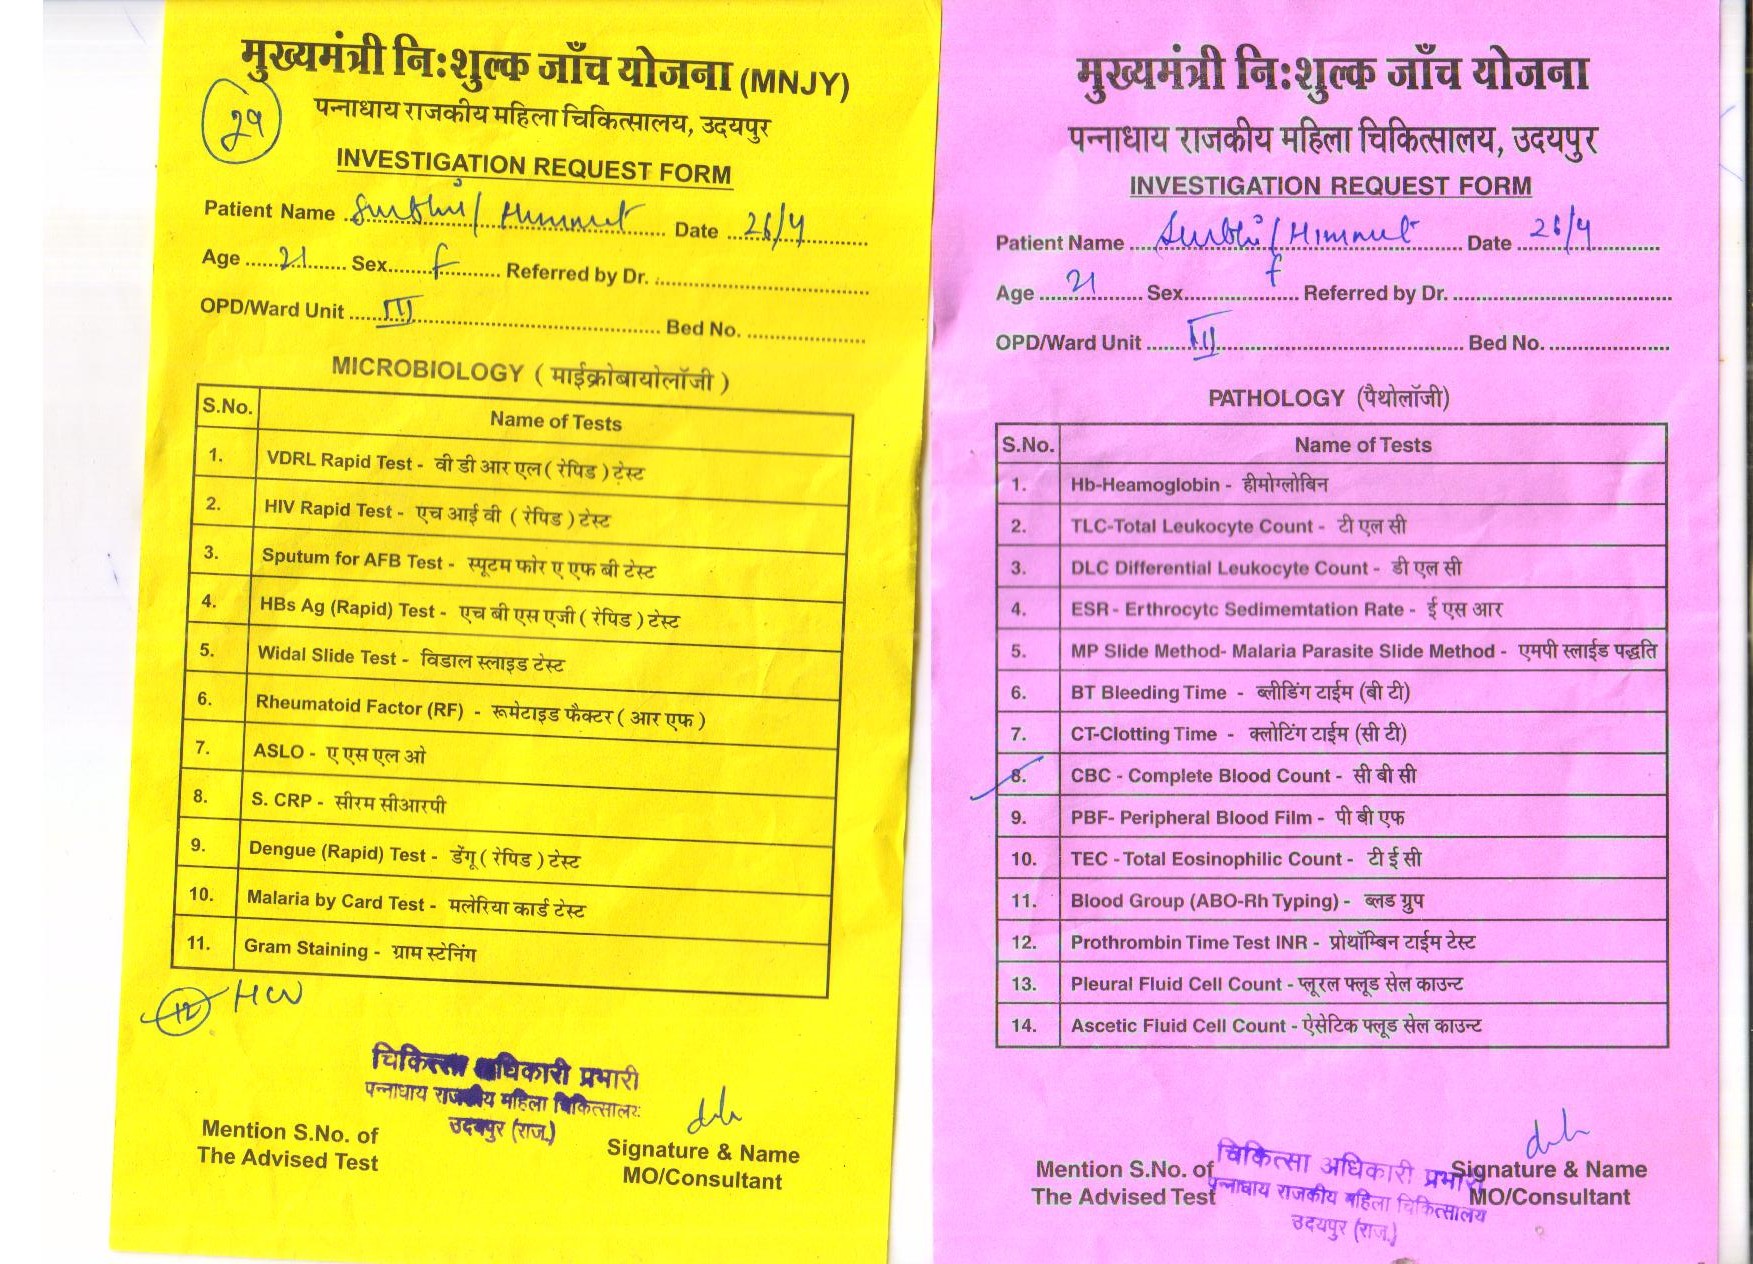 मुख्यमंत्री नि:शुल्क जाँच योजना (MNJY)
29
पन्नाधाय राजकीय महिला चिकित्सालय, उदयपुर
INVESTIGATION REQUEST FORM
Patient Name Surbhi / Himmat Date 26/4
Age 21 Sex f Referred by Dr.
OPD/Ward Unit III Bed No.
MICROBIOLOGY ( माईक्रोबायोलॉजी )
S.No. Name of Tests
1. VDRL Rapid Test - वी डी आर एल ( रेपिड ) टेस्ट
2. HIV Rapid Test - एच आई वी ( रेपिड ) टेस्ट
3. Sputum for AFB Test - स्पूटम फोर ए एफ बी टेस्ट
4. HBs Ag (Rapid) Test - एच बी एस एजी ( रेपिड ) टेस्ट
5. Widal Slide Test - विडाल स्लाइड टेस्ट
6. Rheumatoid Factor (RF) - रूमेटाइड फैक्टर ( आर एफ )
7. ASLO - ए एस एल ओ
8. S. CRP - सीरम सीआरपी
9. Dengue (Rapid) Test - डेंगू ( रेपिड ) टेस्ट
10. Malaria by Card Test - मलेरिया कार्ड टेस्ट
11. Gram Staining - ग्राम स्टेनिंग
12
चिकित्सा अधिकारी प्रभारी
पन्नाधाय राजकीय महिला चिकित्सालय
उदयपुर (राज.)
Mention S.No. of
The Advised Test
Signature & Name
MO/Consultant
मुख्यमंत्री नि:शुल्क जाँच योजना
पन्नाधाय राजकीय महिला चिकित्सालय, उदयपुर
INVESTIGATION REQUEST FORM
Patient Name Surbhi / Himmat Date 26/4
Age 21 Sex f Referred by Dr.
OPD/Ward Unit III Bed No.
PATHOLOGY (पैथोलॉजी)
S.No. Name of Tests
1. Hb-Heamoglobin - हीमोग्लोबिन
2. TLC-Total Leukocyte Count - टी एल सी
3. DLC Differential Leukocyte Count - डी एल सी
4. ESR - Erthrocytc Sedimemtation Rate - ई एस आर
5. MP Slide Method- Malaria Parasite Slide Method - एमपी स्लाईड पद्धति
6. BT Bleeding Time - ब्लीडिंग टाईम (बी टी)
7. CT-Clotting Time - क्लोटिंग टाईम (सी टी)
8. CBC - Complete Blood Count - सी बी सी
9. PBF- Peripheral Blood Film - पी बी एफ
10. TEC - Total Eosinophilic Count - टी ई सी
11. Blood Group (ABO-Rh Typing) - ब्लड ग्रुप
12. Prothrombin Time Test INR - प्रोथॉम्बिन टाईम टेस्ट
13. Pleural Fluid Cell Count - प्लूरल फ्लूड सेल काउन्ट
14. Ascetic Fluid Cell Count - ऐसेटिक फ्लूड सेल काउन्ट
Mention S.No. of
The Advised Test
चिकित्सा अधिकारी प्रभारी
पन्नाधाय राजकीय महिला चिकित्सालय
उदयपुर (राज.)
Signature & Name
MO/Consultant